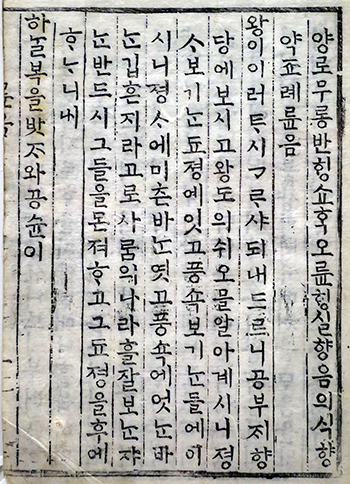 양로무롱반ᄒᆡᆼ쇼ᄒᆞᆨ오륜ᄒᆡᆼ실향음의식향
약죠례륜음
왕이이러ᄐᆞ시ᄀᆞᄅᆞ샤ᄃᆡ내드르니공부ᄌᆞ향
당에보시고왕도의쉬오믈알아계시니졍
ᄉᆞ보기ᄂᆞᆫ됴졍에잇고풍쇽보기ᄂᆞᆫ들에이
시니졍ᄉᆞ에미ᄎᆞᆫ바ᄂᆞᆫ엿고풍쇽에엇ᄂᆞᆫ바
ᄂᆞᆫ깁흔지라고로사ᄅᆞᆷ의나라흘잘보ᄂᆞᆫ쟈
ᄂᆞᆫ반ᄃᆞ시그들을몬져ᄒᆞ고그됴졍을후에
ᄒᆞᄂᆞ니내
하ᄂᆞᆯ부을밧ᄌᆞ와공슌이